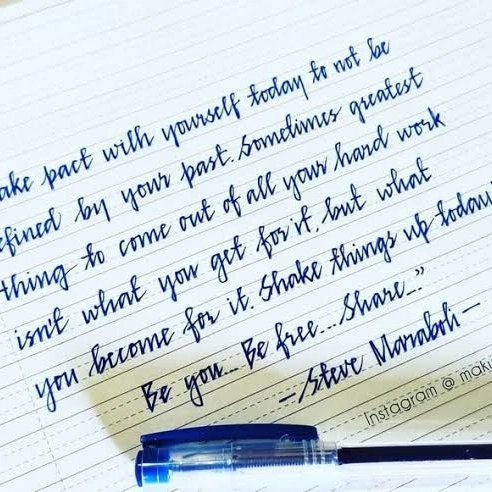 ake pact with yourself today to not be
efined by your past. Sometimes greatest
thing to come out of all your hard work
isn't what you get for it, but what
you become for it. Shake things up today
Be you... Be free... Share..."
- Steve Maraboli -
Instagram @ maku